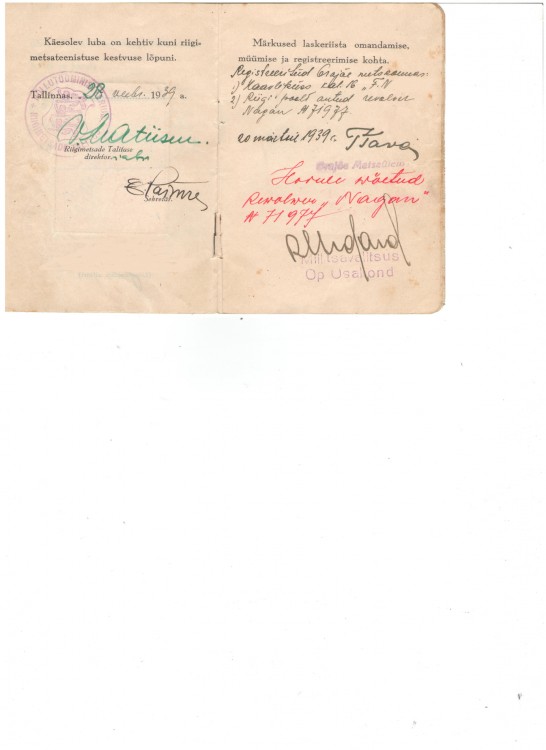 Käesolev luba on kehtiv kuni riigi-
metsateenistuse kestvuse lõpuni.
Tallinnas, 28 veebr. 1939 a.
Riigimetsade Talituse
direktor
Sekretär.
Märkused laskeriista omandamise,
müümise ja registreerimise kohta.
Registreeritud Orajõe metskonnas:
1) Haavlipüss kal. 16 „F.N
2) Riigi poolt antud revolver
Nagan № 71977
20 märtsil 1939.
Orajõe Metsaülem
Horuli wõetud
Rewolwer „Nagan"
№ 71977
Miilitsavalitsus
Op Osakond